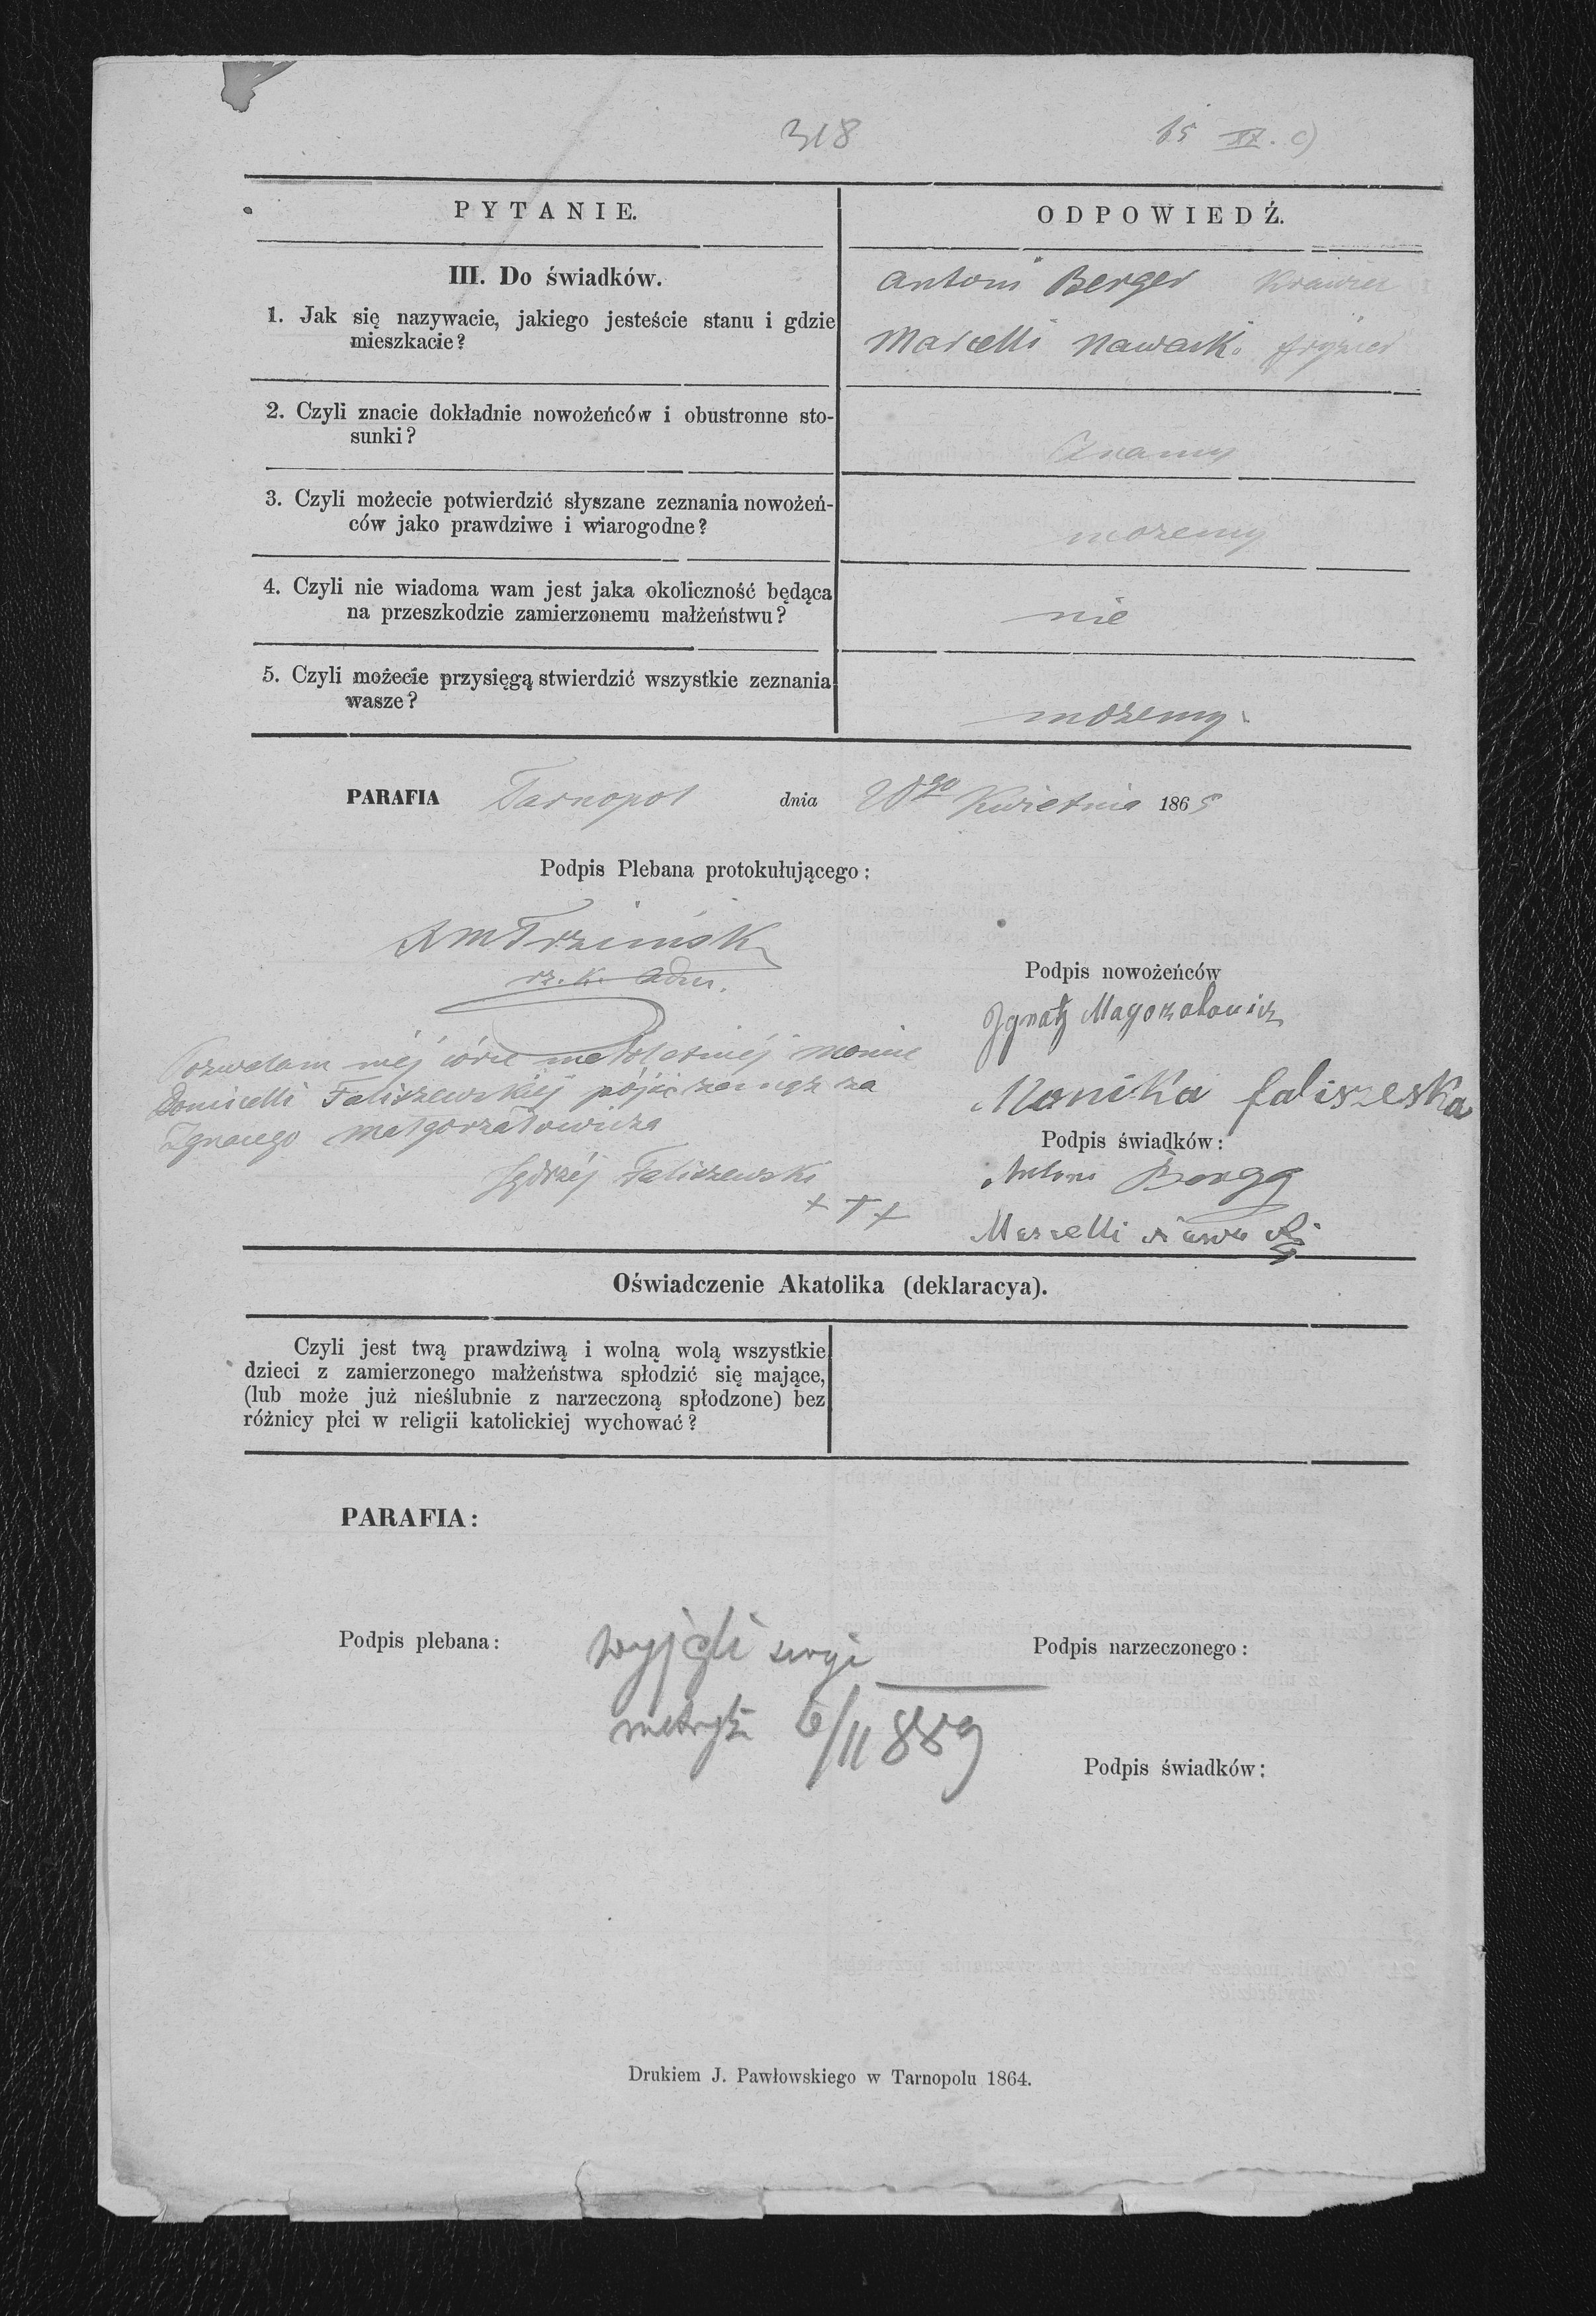 318
65 XI. c)
PYTANIE.
ODPOWIEDŹ.
III. Do świadków.
1. Jak się nazywacie, jakiego jesteście stanu i gdzie
mieszkacie?
Antoni Berger Krawiec
Marcelli Nawack. fryzier
2. Czyli znacie dokładnie nowożeńców i obustronne sto-
sunki?
Znamy
3. Czyli możecie potwierdzić słyszane zeznania nowożeń-
ców jako prawdziwe i wiarogodne?
mozemy
4. Czyli nie wiadoma wam jest jaka okoliczność będąca
na przeszkodzie zamierzonemu małżeństwu?
nie
5. Czyli możecie przysięgą stwierdzić wszystkie zeznania
wasze?
mozemy
PARAFIA Tarnopol dnia Kwietnia 1865
Podpis Plebana protokułującego:
rz. k. Adm.
Podpis nowożeńców
Ignatz
Monika faliszeska
Pozwalam méj córce małoletniéj Monice
Domicelli Faliszewskiéj pójść zamąż za
Ignacego Małgorzatowicza
Jędrzéj Faliszewski
+ + +
Podpis świadków:
Antoni
Marcelli
Oświadczenie Akatolika (deklaracya).
Czyli jest twą prawdziwą i wolną wolą wszystkie
dzieci z zamierzonego małżeństwa spłodzić się mające,
(lub może już nieślubnie z narzeczoną spłodzone) bez
różnicy płci w religii katolickiej wychować?
PARAFIA:
Podpis plebana:
wyjęli
6/11 889
Podpis narzeczonego:
Podpis świadków:
Drukiem J. Pawłowskiego w Tarnopolu 1864.